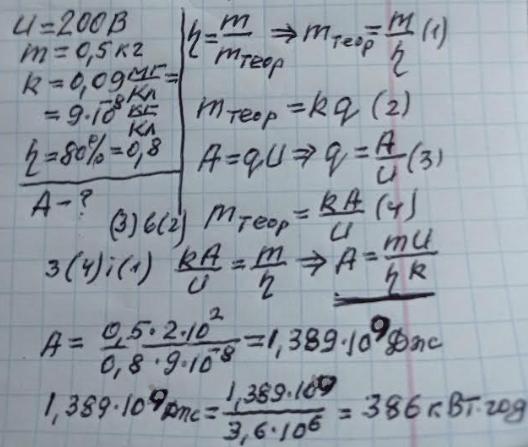 U = 200 В
m = 0,5 кг
k = 0,09 мг/Кл =
= 9·10⁻⁸ кг/Кл
η = 80% = 0,8
A - ?
η = m/mтеор ⇒ mтеор = m/η (1)
mтеор = kq (2)
A = qU ⇒ q = A/U (3)
(3) в (2) mтеор = kA/U (4)
З (4) і (1) kA/U = m/η ⇒ A = mU/ηk
A = 0,5·2·10²/0,8·9·10⁻⁸ = 1,389·10⁹ Дж
1,389·10⁹ Дж = 1,389·10⁹/3,6·10⁶ = 386 кВт·год